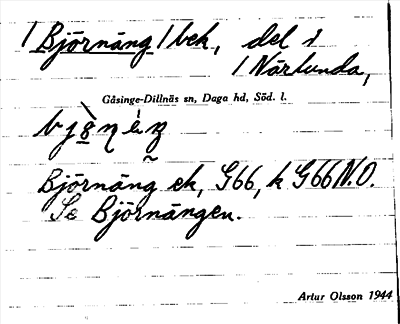 / Björnäng / bek, del i
/ Närlunda,
Gåsinge-Dillnäs sn, Daga hd, Söd. l.
Björnäng ek, G66, k G66 N.O.
Se Björnängen.
Artur Olsson 1944